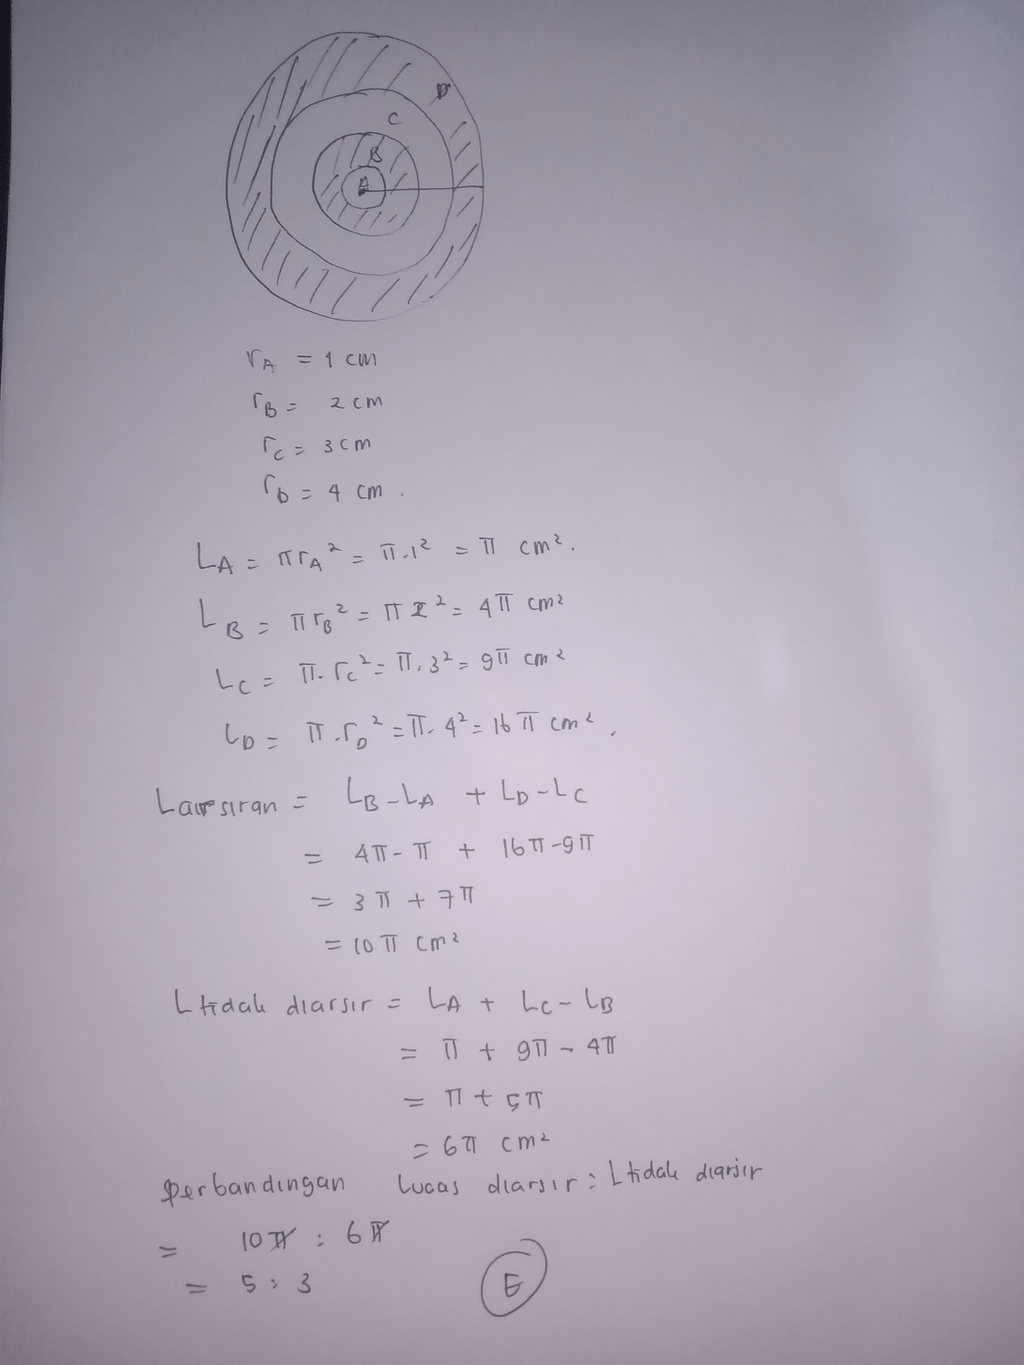 D
C
B
A
rA = 1 cm
rB = 2 cm
rC = 3 cm
rD = 4 cm.
LA = πrA² = π.1² = π cm².
LB = πrB² = π2² = 4π cm²
LC = π.rC² = π.3² = 9π cm²
LD = π.rD² = π.4² = 16π cm².
Larsiran = LB - LA + LD - LC
= 4π - π + 16π - 9π
= 3π + 7π
= 10π cm²
Ltidak diarsir = LA + LC - LB
= π + 9π - 4π
= π + 5π
= 6π cm²
Perbandingan Luas diarsir : Ltidak diarsir
= 10π : 6π
= 5 : 3
E